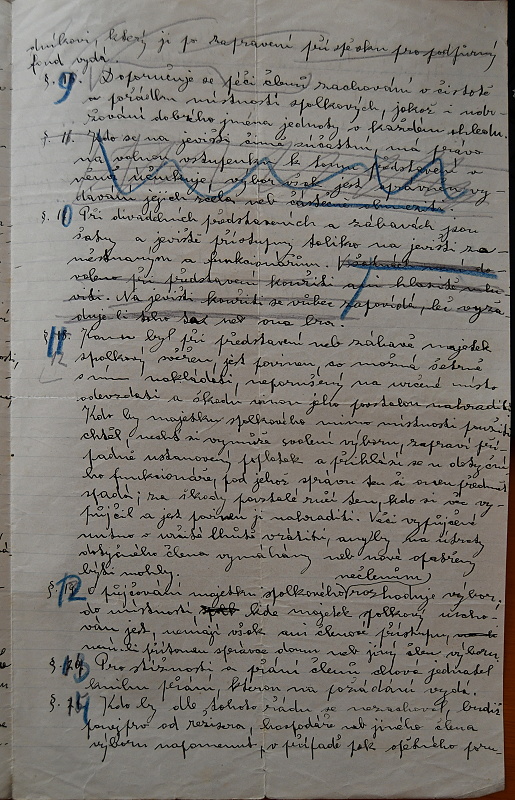 dníkovi, který ji po zapravení příspěvku prospěšný
fond vydá.
§. 9 Doporučuje se péči členů zachování v čistotě
a pořádku místností spolkových, jakož i udr-
žování dobrého jména jednoty v každém ohledu.
§. 11. Kdo se na jevišti činně súčastní, má právo
na volnou vstupenku k tomu představení v
němž účinkuje, výbor však jest oprávněn vy-
dávání jejich zcela neb částečně obmeziti.
§. 10 Při divadelních představeních a zábavách jsou
šatny a jeviště přístupny toliko na jevišti za-
městnaným a funkcionářům.
voleno při představení kouřiti a
Na jevišti kouřiti se vůbec zapovídá, leč vyža-
duje-li toho neb ona hra.
§. 11 Komu byl při představení neb zábavě majetek
spolkový svěřen jest povinen, co možná šetrně
s ním nakládati, neporušený na určené místo
odevzdati a škodu jeho povstalou nahraditi.
Kdo by majetku spolkového mimo místnosti použíti
chtěl, nechť si vymůže svolení výboru, zapraví pří-
padně ustanovený poplatek a přihlásí se u dotyčné-
ho funkcionáře, pod jehož správu ten či onen předmět
spadá; za škody povstalé ručí ten, kdo si věc vy-
půjčil a jest povinen ji nahraditi. Věci vypůjčené
nutno v určité lhůtě vrátiti, anyžby na útraty
dotyčného člena vymáhány neb nové opatřeny
býti mohly.
nečlenům
§. 12 O půjčování majetku spolkového rozhoduje výbor;
do místností kde majetek spolkový uscho-
ván jest, nemají však ani členové přístupu,
není-li přítomen správce domu neb jiný člen výboru.
§. 13 Pro stížnosti a přání členů chová jednatel
knihu přání, kterou na požádání vydá.
§. 14 Kdo by dle tohoto řádu se nezachoval, budiž
ponejprv od režisera, hospodáře neb jiného člena
výboru napomenut, v případě pak opětného